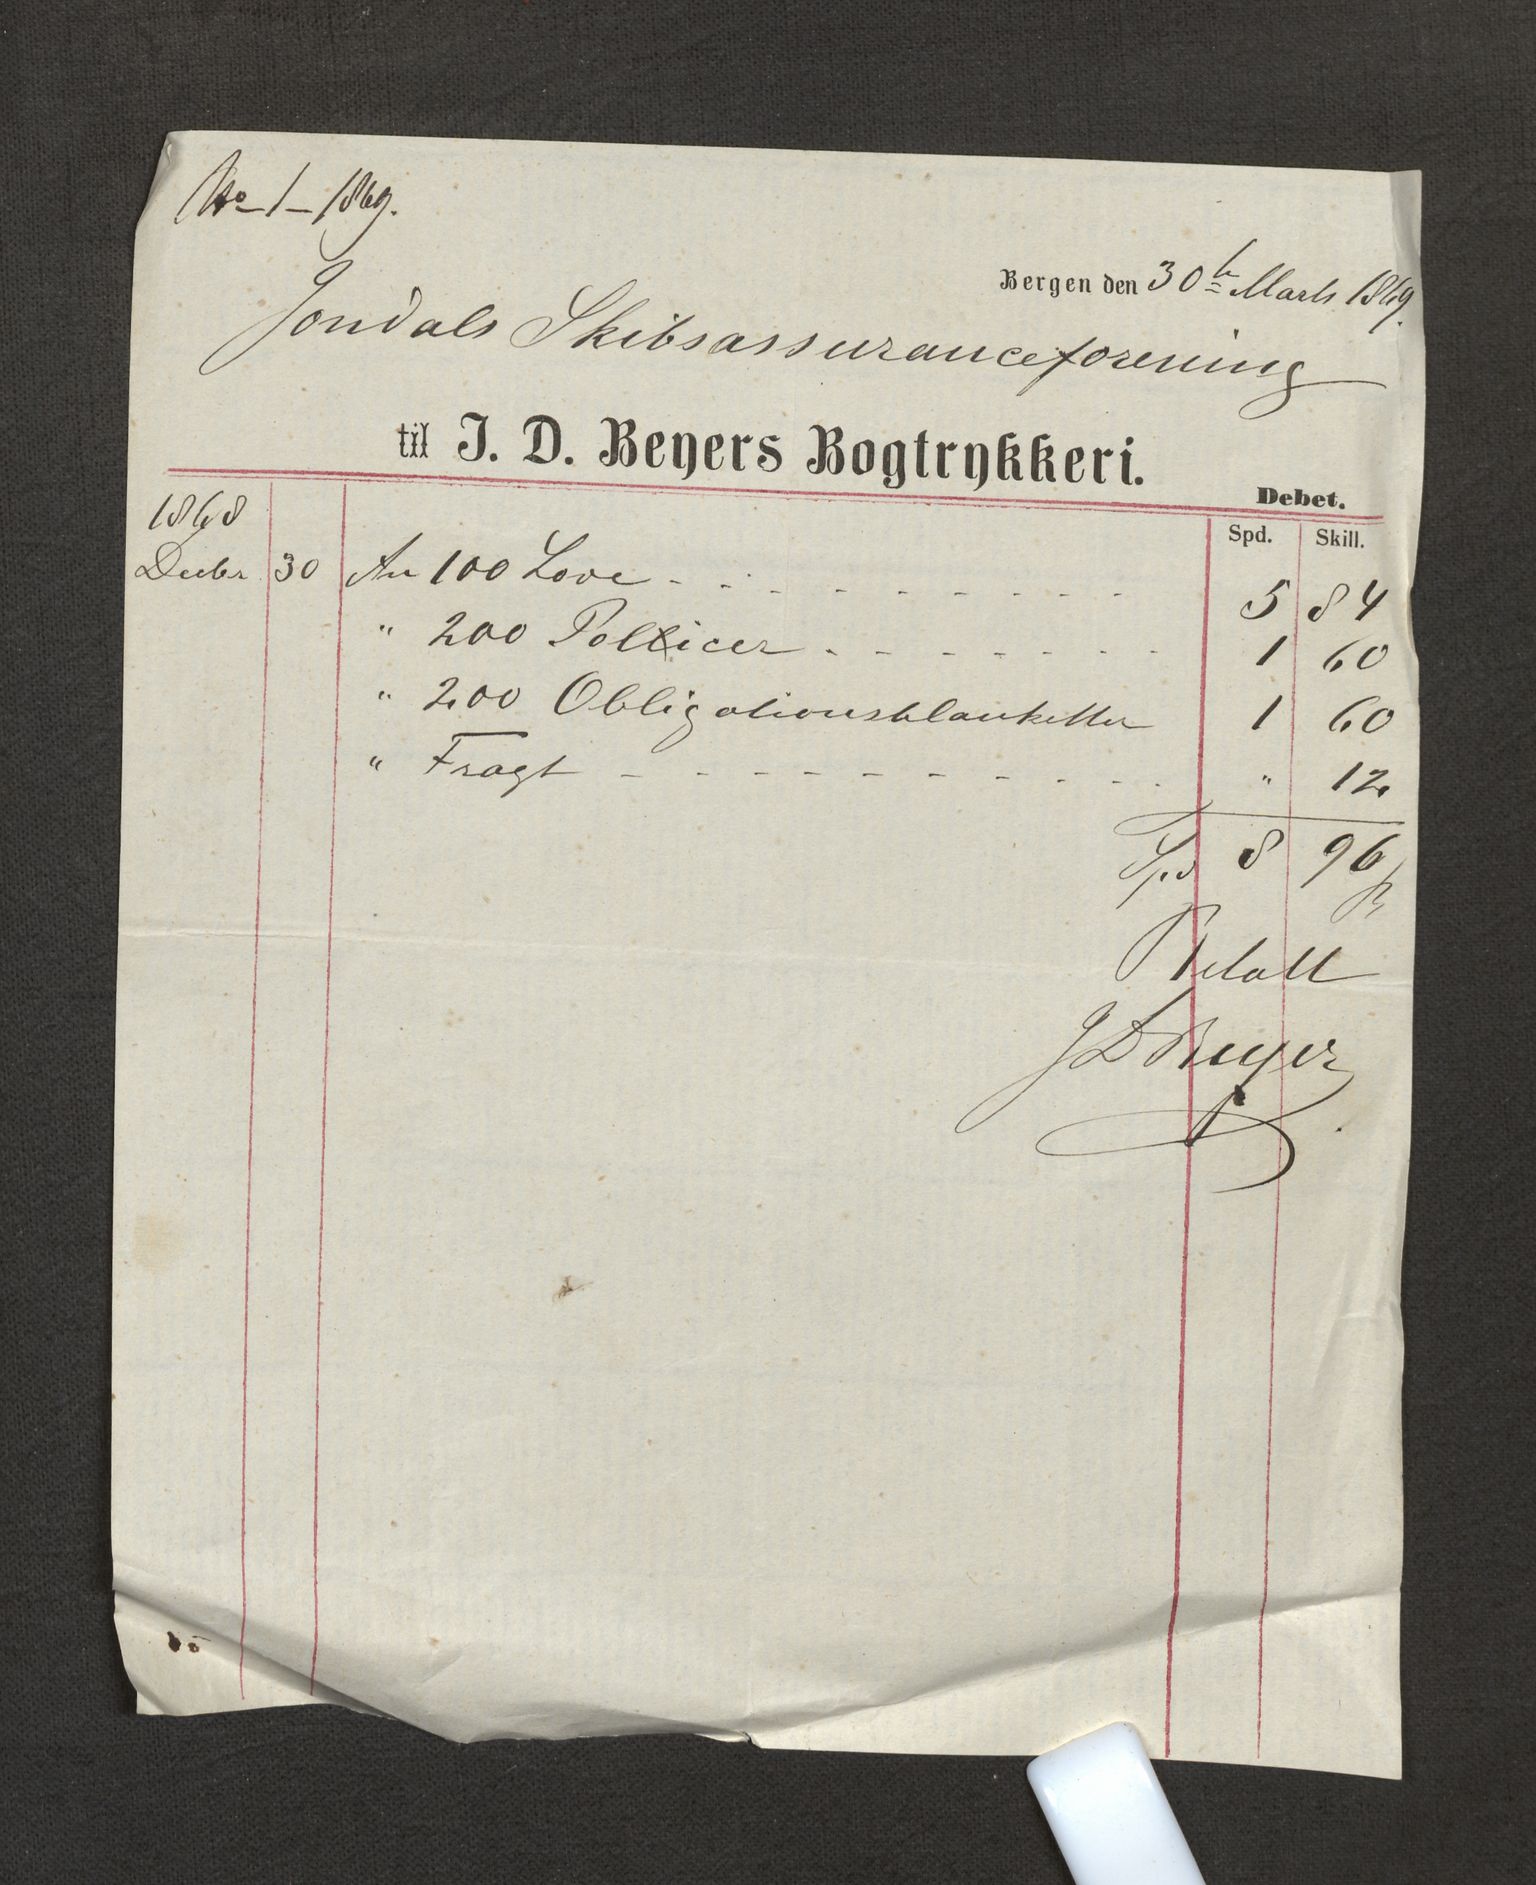 No 1 - 1869.
Bergen den 30te Marts 1869.
Jondals Skibsassuranceforening
til J. D. Beyers Bogtrykkeri.
Debet.
Spd. Skill.
1868
Decbr 30 An 100 Love - - - - - - - - - - 5 84
" 200 Pollicer - - - - - - - 1 60
" 200 Obligationsblanketter 1 60
" Fragt - - - - - - - - - - " 12
Spd 8 96
Betalt
J D Beyer